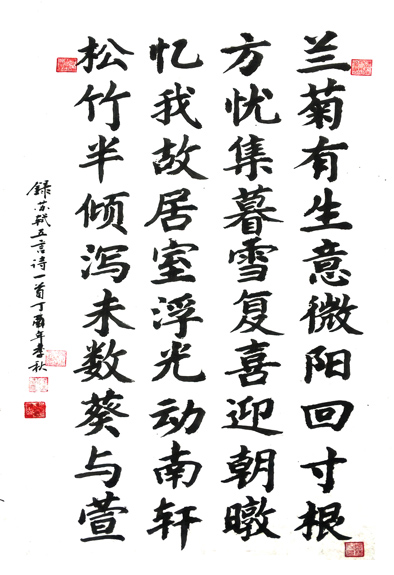 兰菊有生意微阳回寸根
方忧集暮雪复喜迎朝暾
忆我故居室浮光动南轩
松竹半倾泻未数葵与萱
録苏轼五言诗一首丁酉年季秋